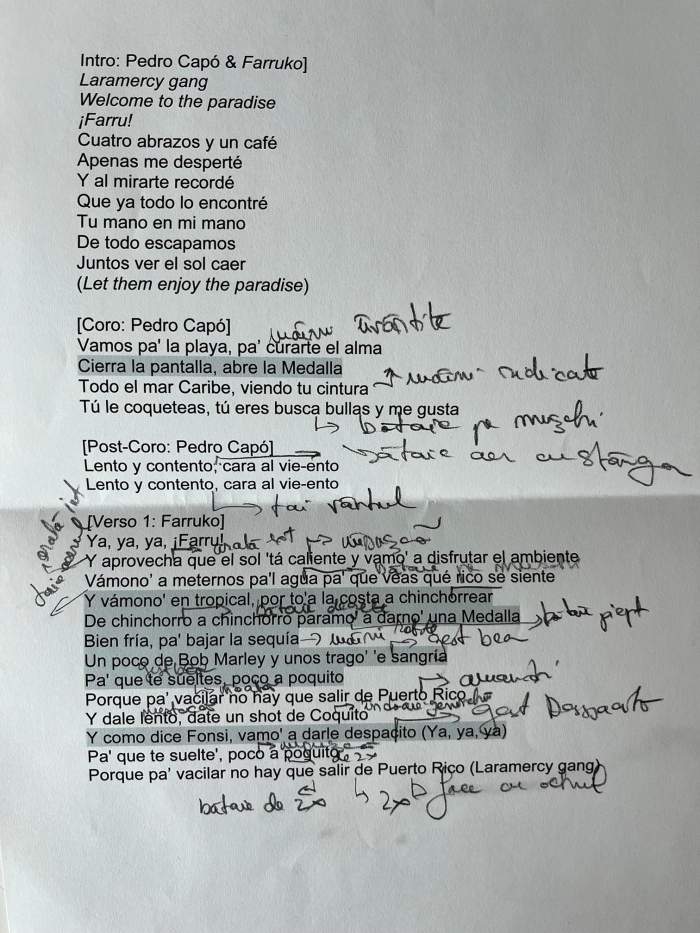 Intro: Pedro Capó & Farruko]
Laramercy gang
Welcome to the paradise
¡Farru!
Cuatro abrazos y un café
Apenas me desperté
Y al mirarte recordé
Que ya todo lo encontré
Tu mano en mi mano
De todo escapamos
Juntos ver el sol caer
(Let them enjoy the paradise)
[Coro: Pedro Capó]
mâini
Vamos pa' la playa, pa' curarte el alma
Cierra la pantalla, abre la Medalla
mâini ridicate
Todo el mar Caribe, viendo tu cintura
Tú le coqueteas, tú eres busca bullas y me gusta
bataie pe
[Post-Coro: Pedro Capó]
bătaie aer cu stânga
Lento y contento, cara al vie-ento
Lento y contento, cara al vie-ento
tai vântul
[Verso 1: Farruko]
Ya, ya, ya, ¡Farru!
arată
Y aprovecha que el sol 'tá caliente y vamo' a disfrutar el ambiente
Vámono' a meternos pa'l agua pa' que veas qué rico se siente
Y vámono' en tropical, por to'a la costa a chinchorrear
bataie
De chinchorro a chinchorro paramo' a darno' una Medalla
bataie piept
Bien fría, pa' bajar la sequía
mâini
gest bea
Un poco de Bob Marley y unos trago' 'e sangría
gest bea
Pa' que te sueltes, poco a poquito
Porque pa' vacilar no hay que salir de Puerto Rico
Y dale lento, date un shot de Coquito
gest
Y como dice Fonsi, vamo' a darle despacito (Ya, ya, ya)
Pa' que te suelte', poco a poquito
de 2x
Porque pa' vacilar no hay que salir de Puerto Rico (Laramercy gang)
bataie de 2x
2x face cu ochiul